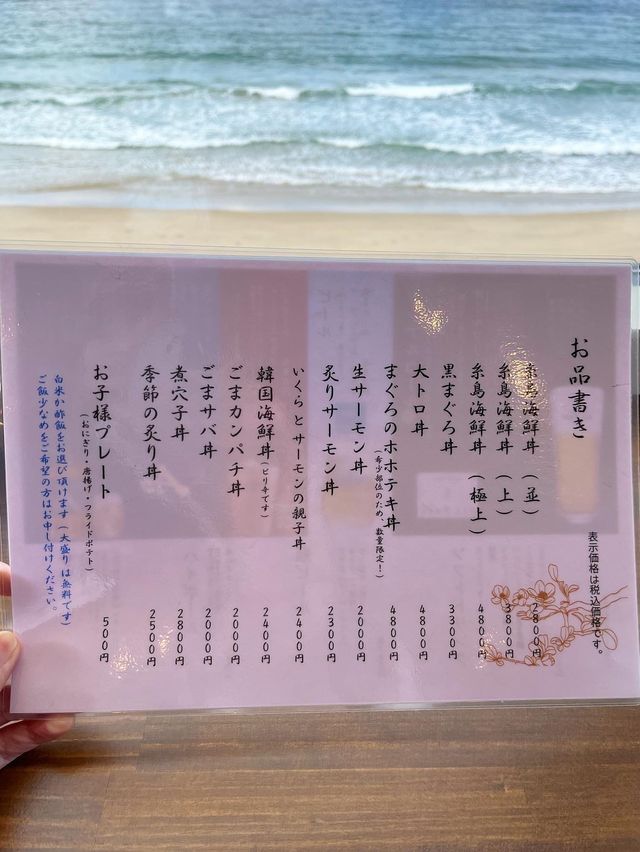 お品書き
表示価格は税込価格です。
糸島海鮮丼 (並) 2800円
糸島海鮮丼 (上) 3800円
糸島海鮮丼 (極上) 4800円
黒まぐろ丼 3300円
大トロ丼 4800円
まぐろのホホテキ丼 4800円
(希少部位のため、数量限定！)
生サーモン丼 2000円
炙りサーモン丼 2300円
いくらとサーモンの親子丼 2400円
韓国海鮮丼(ピリ辛です) 2400円
ごまカンパチ丼 2000円
ごまサバ丼 2000円
煮穴子丼 2800円
季節の炙り丼 2500円
お子様プレート 500円
(おにぎり・唐揚げ・フライドポテト)
白米か酢飯をお選び頂けます (大盛りは無料です)
ご飯少なめをご希望の方はお申し付けください。